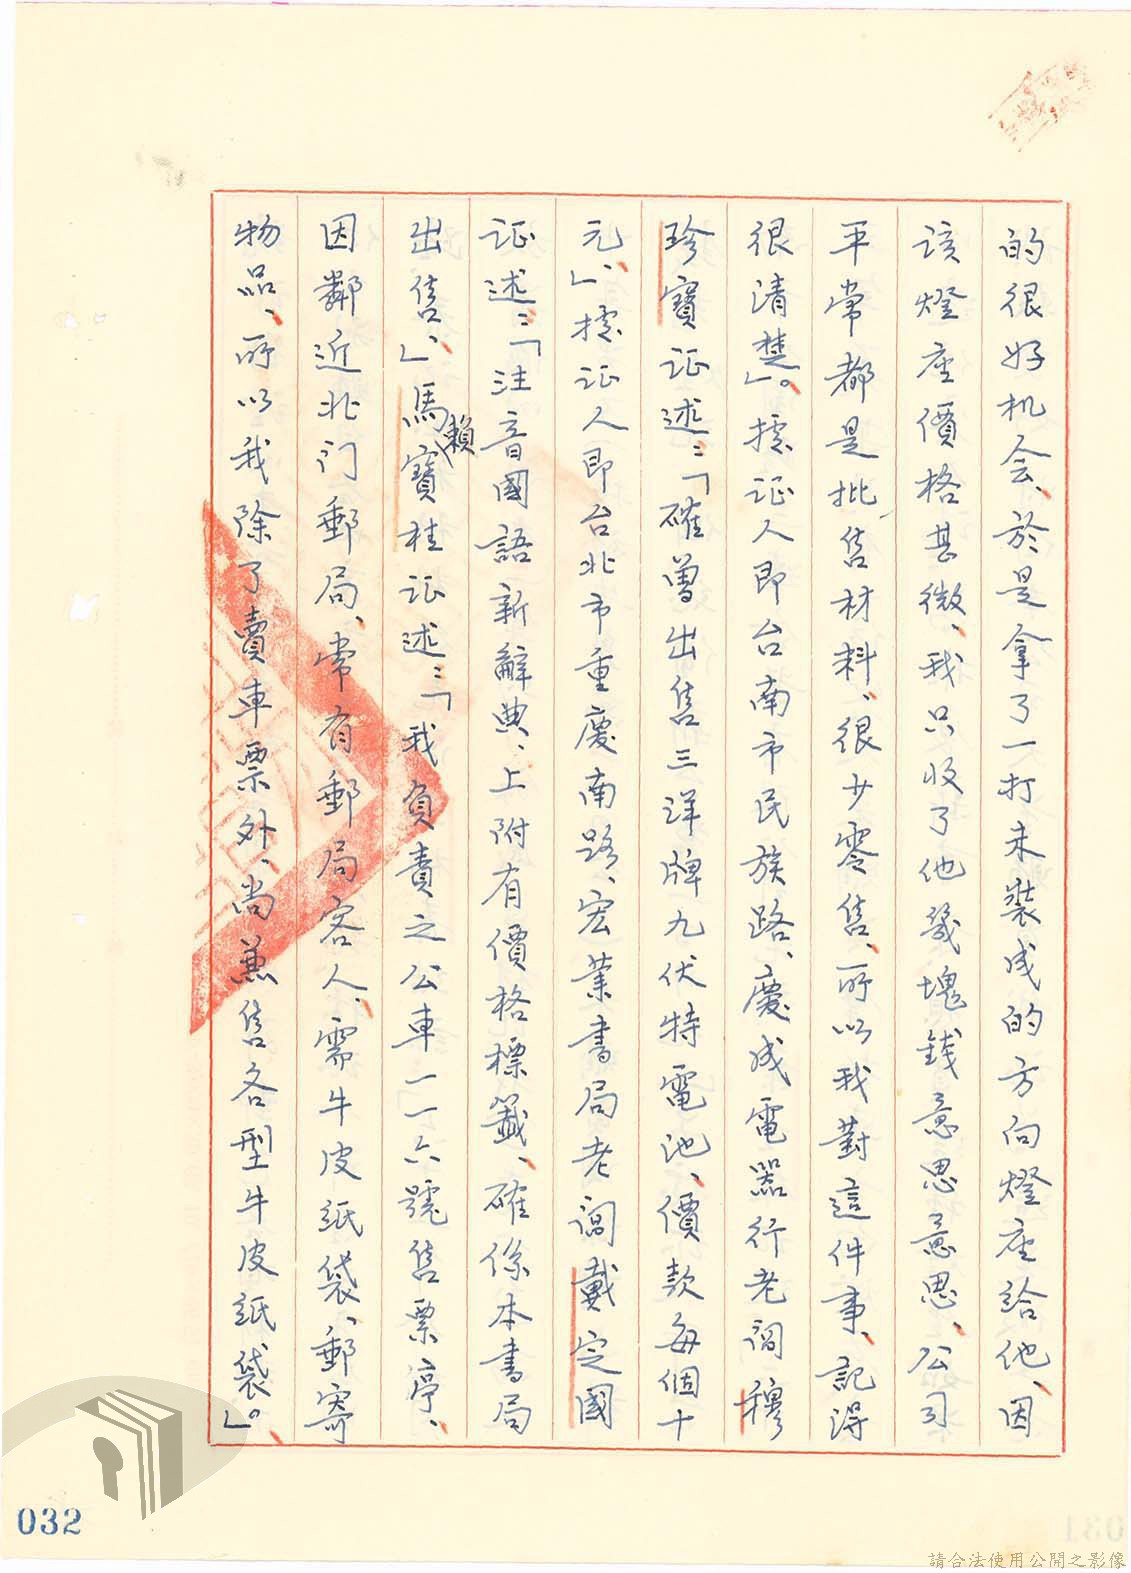 的很好机会、於是拿了一打未裝成的方向燈座給他、因
該燈座價格甚微、我只收了他幾塊錢意思意思、公司
平常都是批售材料、很少零售、所以我對這件事、記得
很清楚」。據证人即台南市民族路、慶成電器行老闆穆
珍寶证述：「確曾出售三洋牌九伏特電池、價款每個十
元、」據证人即台北市重慶南路、宏業書局老闆戴定國
证述：「注音國語新辭典、上附有價格標籤、確係本書局
出售、」馬賴寶桂证述：「我負責之公車一一六號售票亭、
因鄰近北门郵局、常有郵局客人、需牛皮紙袋、郵寄
物品、所以我除了賣車票外、尚兼售各型牛皮紙袋」。
032
請合法使用公開之影像